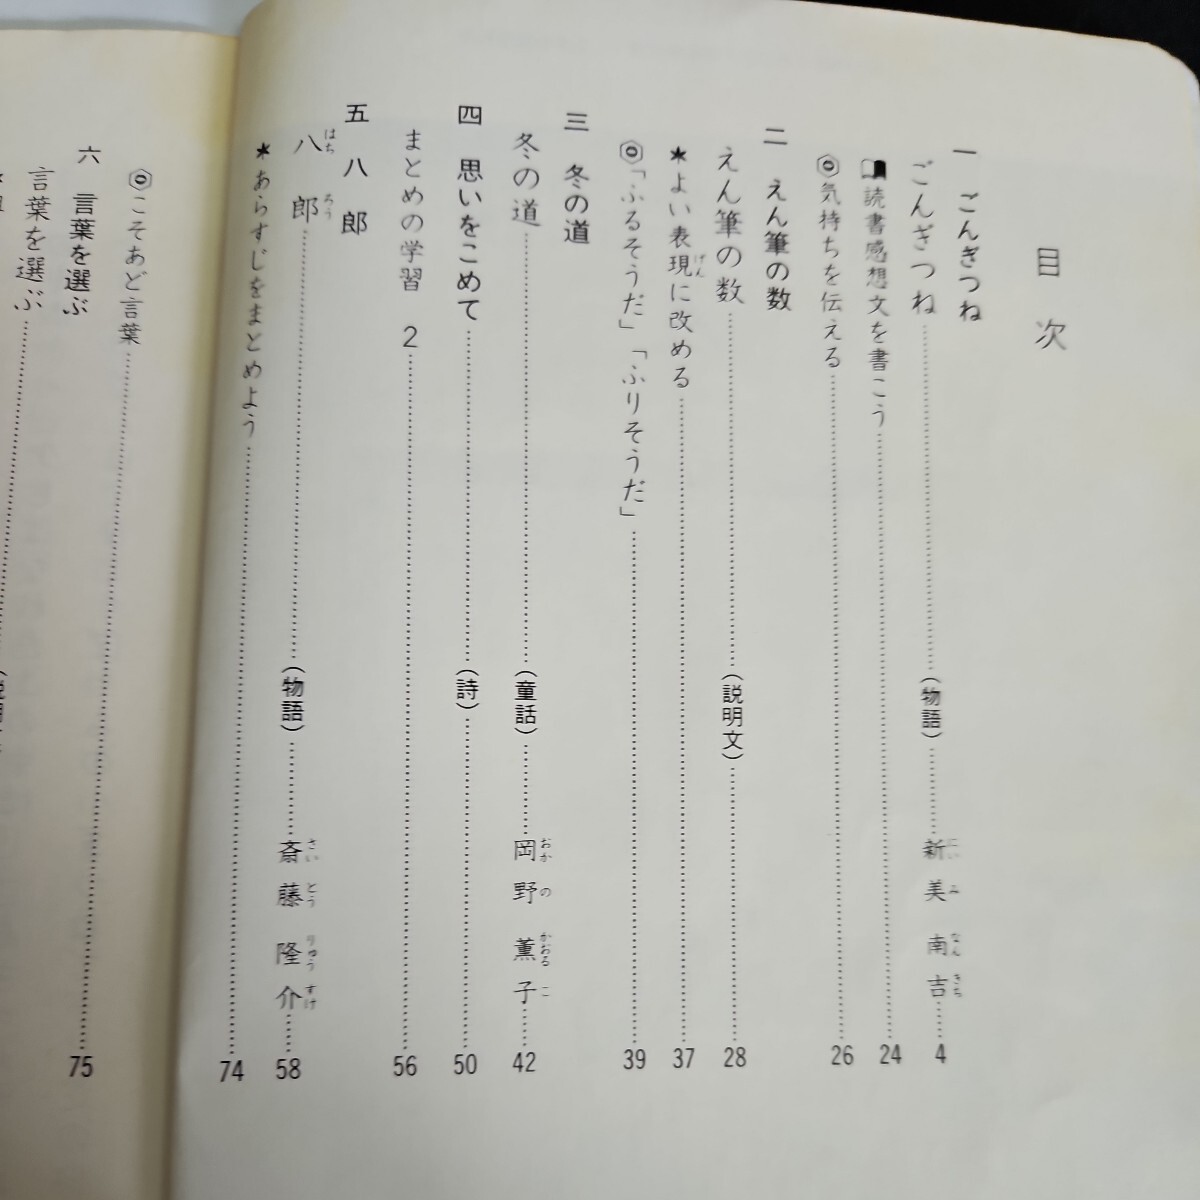 目次
一 ごんぎつね
ごんぎつね……（物語）……新美南吉……4
読書感想文を書こう……24
気持ちを伝える……26
二 えん筆の数
えん筆の数……（説明文）……28
★よい表現に改める……37
「ふるそうだ」「ふりそうだ」……39
三 冬の道
冬の道……（童話）……岡野薫子……42
四 思いをこめて……（詩）……50
まとめの学習 2……56
五 八郎
八郎……（物語）……斎藤隆介……58
★あらすじをまとめよう……74
こそあど言葉……75
六 言葉を選ぶ
言葉を選ぶ……